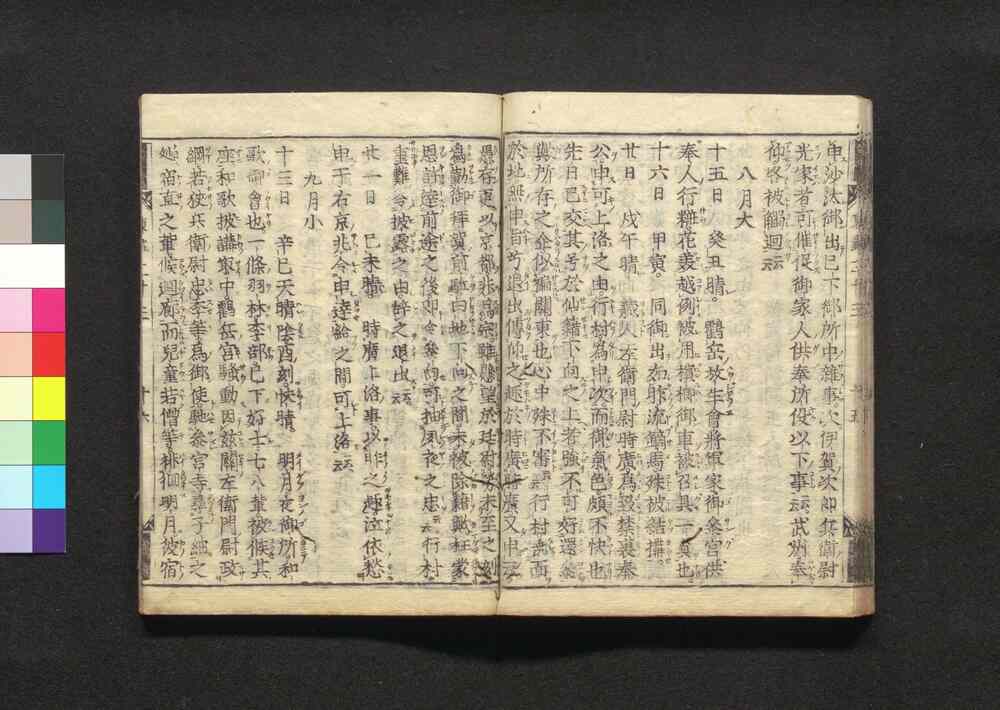 申沙汰御出已下御所中雜事次伊賀次郎兵衞尉
光宗者可催促御家人供奉所役以下事云云武州奉
仰咯被觸廻云云
八月大
十五日 癸丑晴 鶴岳放生會將軍家御參宮供
奉人行粧花美越例被用檳榔御車被召具一員也
十六日 甲寅 同御出如昨流鏑馬殊被結構
廿日 戊午晴 義人左衞門尉時廣爲
公申可上洛之由行村爲申次而御氣色頗不快也
先日已交其号於仙籍下向之上者強不可好還參
與所存之企似褊關東也心中殊不審云云行村無面
於地無申旨退出傳仰之趣於時廣時廣又申云
愚存更以京都非爲宗雖懸望於廷尉未至之刻
爲勤御拜賀前駈白地下向之間未被除籍歟枉蒙
恩許達前途之後即令參向可抽夙夜之忠云云行村
重難令披露之由辞之退出云云
廿一日 己未晴 時廣上洛事以昨之趣泣依愁
申于右京兆令申達給之間可上洛云云
九月小
十三日 辛巳天晴陰酉刻快晴 明月夜御所和
歌御會也一條羽林李部已下好士七八輩被候其
座和歌披講最中鶴岳宮騷動因茲關左衞門尉政
綱若使兵衞尉忠季等爲御使馳參宮寺尋子細之
處宿直之輩候廻廊而兒童若僧等徘徊明月彼宿